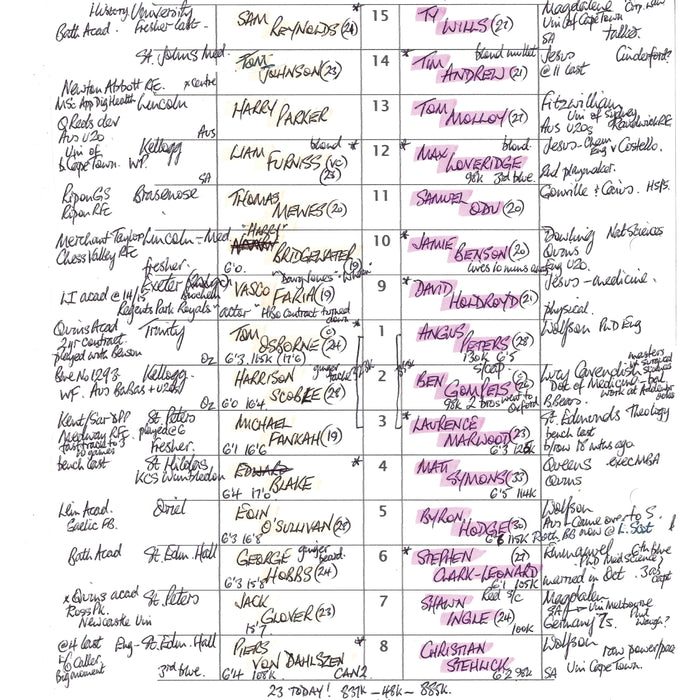 History University
Bath Acad. Fresher last
SAM REYNOLDS (24)
*
15
TY WILLS (21)
Magdalene
Uni of Cape Town
SA
taller.
St. Johns Med
Newton Abbott RFC. x centre
TOM JOHNSON (23)
14
* TIM ANDREW (21)
blond mullet
Jesus
@ 11 last
Cinderford?
MSc App Dig Health Lincoln
Q Reds dev
Aus U20
Aus
HARRY PARKER
13
TOM MOLLOY (27)
Fitzwilliam
Uni of Sydney
Aus U20s Randwick RFC
Uni of Cape Town. WP.
Kellogg
SA
blond *
LIAM FURNISS (VC)
12
* MAX LOVERIDGE
blond.
98k 3rd blue.
Jesus - Chem Eng v Costello.
2nd playmaker.
Ripon GS
Ripon RFC
Brasenose
THOMAS MEWES (20)
11
SAMUEL ODU (20)
Gonville & Caius. HSPS.
Merchant Taylor Lincoln - Med
Chess Valley RFC
fresher.
"HARRY"
BRIDGEWATER (19)
6'0.
10
* JAMIE BENSON (20)
lives 10 mins
Downing Nat Sciences
Quins
Eng U20.
LI acad @ 14/15
Exeter
Regents Park Royals
VASCO FARIA (19)
"actor" HBO contract turned down
9
* DAVID HOLDROYD (21)
Jesus - medicine.
physical.
Quins Acad
2yr contract
played with Benson
Trinity
Oz
*
TOM OSBORNE (c) (24)
6'3. 115k (17'6)
1
ANGUS PETERS (28)
130k 6'5
Wolfson PhD Eng
Blue No 1293.
WF. Aus BaBas + U20s
Kellogg
Oz
HARRISON SCOBLE (28)
ginger tache
6'0 16'4
2
s/cap
BEN GOMPELS (c)
98k 2 bros went to Oxford
Lucy Cavendish
Doct of Medicine
B. Bears.
masters
work at Addenbrookes
Kent/Sar's PP
Medway RFC
bench last
St Peters
played @ 6
fresher.
MICHAEL PANKAH (19)
6'1 16'6
3
* LAURENCE MARWOOD (23)
6'3
St. Edmunds Theology
bench last
b/row 18 mths ago
St Hildas
KCS Wimbledon
EDWARD BLAKE
6'4 17'0
4
MATT SYMONS (33)
6'5 114k
Queens exec MBA
Quins
Lein Acad.
Gaelic FB.
Oriel
EOIN O'SULLIVAN (28)
6'3 16'8
5
BYRON HODGE (30)
6'6 115k
Wolfson
Aus - Came over to S.
Roth BB now @ L. Scot
Bath Acad
St. Edm. Hall
GEORGE HOBBS (24)
ginger beard.
6'3 15'8
6
* STEPHEN (27)
CLARK-LEONARD
6'1 105k
6th blue
PhD Med Science?
married in Oct.
x Quins acad
Ross Pk.
Newcastle Uni
St. Peters
JACK GLOVER (23)
15'7
7
Red s/c
SHAWN INGLE (24)
100k
Magdalen
SA → Uni Melbourne
Germany 7s.
Phil Waugh?
@ 4 last
L/O Caller
Big moment
Eng - St. Edm. Hall
3rd blue.
*
PIERS VON DAHLSZEN
6'4 108k
CAN 2
8
CHRISTIAN STEHLIK
6'2 98k
Wolfson
SA Uni Cape Town.
raw power/pace
23 TODAY! 837k - 48k - 885k.